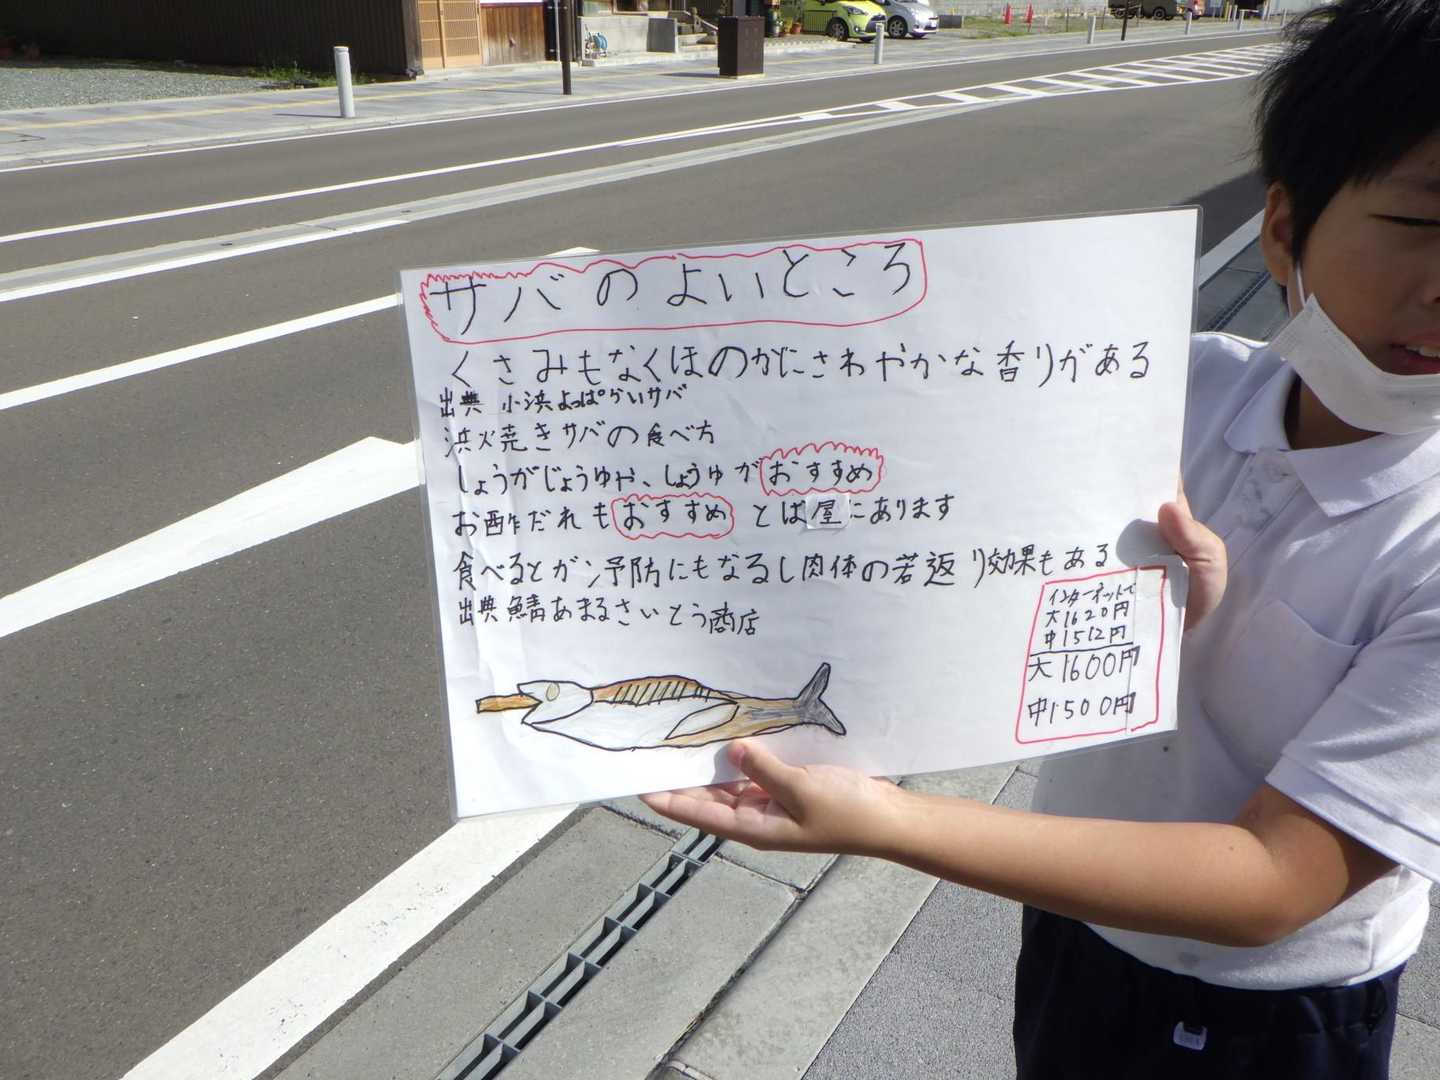 サバのよいところ
くさみもなくほのかにさわやかな香りがある
出典 小浜よっぱらいサバ
浜焼きサバの食べ方
しょうがじょうゆや、しょうゆがおすすめ
お酢だれもおすすめ とば屋にあります
食べるとガン予防にもなるし肉体の若返り効果もある
出典 鯖あまるさいとう商店
インターネットで
大1620円
中1512円
大1600円
中1500円